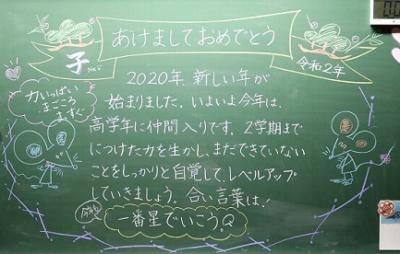 あけましておめでとう
子
令和2年
力いっぱい
まごころ
まっすぐ
2020年、新しい年が
始まりました。いよいよ今年は、
高学年に仲間入りです。2学期まで
につけた力を生かし、まだできていない
ことをしっかりと自覚して、レベルアップ
していきましょう。合い言葉は!
一番星でいこう。